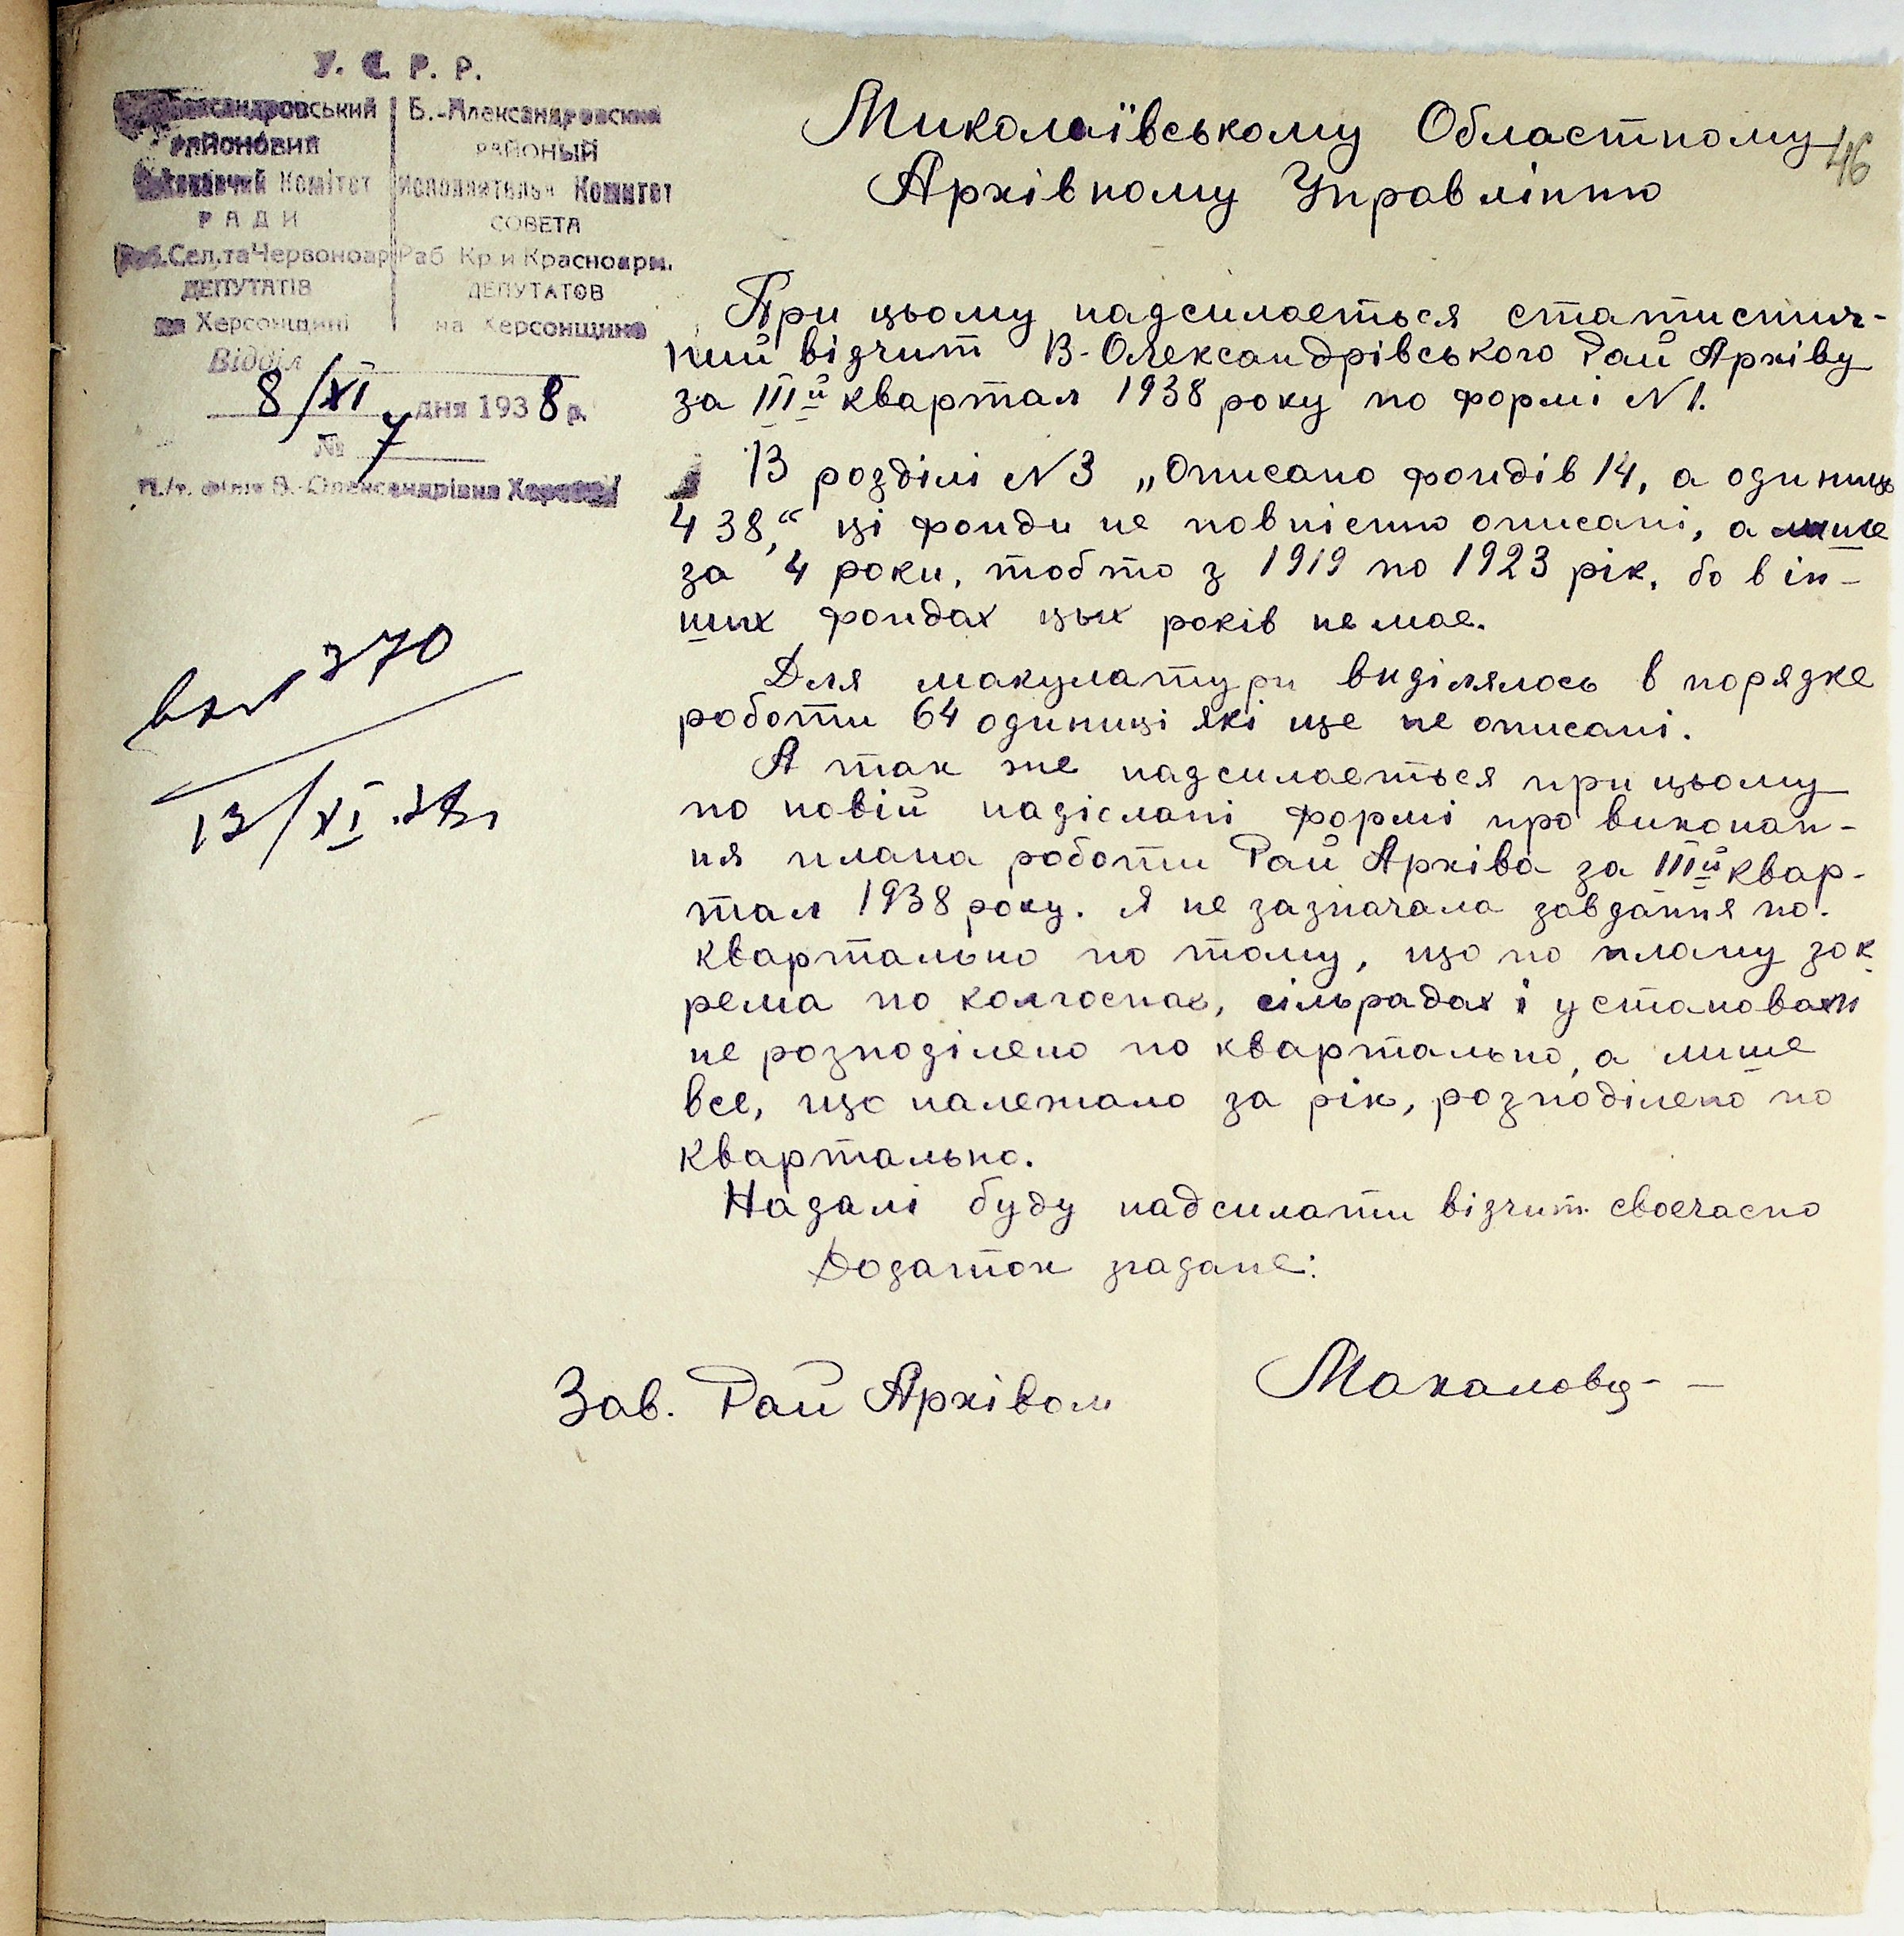 У. С. Р. Р.
РАЙОНОВИЙ
Комітет
РАДИ
Сел. та Червоноар
ДЕПУТАТІВ
на Херсонщині
Б.-Александровский
РАЙОНЫЙ
Исполнительн Комитет
СОВЕТА
Раб Кр и Красноарм.
ДЕПУТАТОВ
на Херсонщине
Відділ
8/XI дня 1938 р.
№ 7
В.-Олександрівка
вх № 370
13/XI.38г
46
Миколаївському Областному
Архівному Управлінню
При цьому надсилається статистич-
ний відчит В-Олександрівського Рай Архіву
за IIIй квартал 1938 року по формі N1.
В розділі N3 „Описано фондів 14, а одиниць
438,“ ці фонди не повністю описані, а лише
за 4 роки, тобто з 1919 по 1923 рік, бо в ін-
ших фондах цих років немае.
Для макулатури виділялось в порядке
роботи 64 одиниці які ще не описані.
А так же надсилаеться при цьому
по новій надіслані формі про виконан-
ня плана роботи Рай Архіва за IIIй квар-
тал 1938 року. Я не зазначала завдання по-
квартально по тому, що по плану зок
рема по колгоспах, сільрадах і установах
не розподілено по квартально, а лише
все, що належало за рік, розподілено по
квартально.
Надалі буду надсилати відчит своечасно
Додаток згадане:
Зав. Рай Архівом